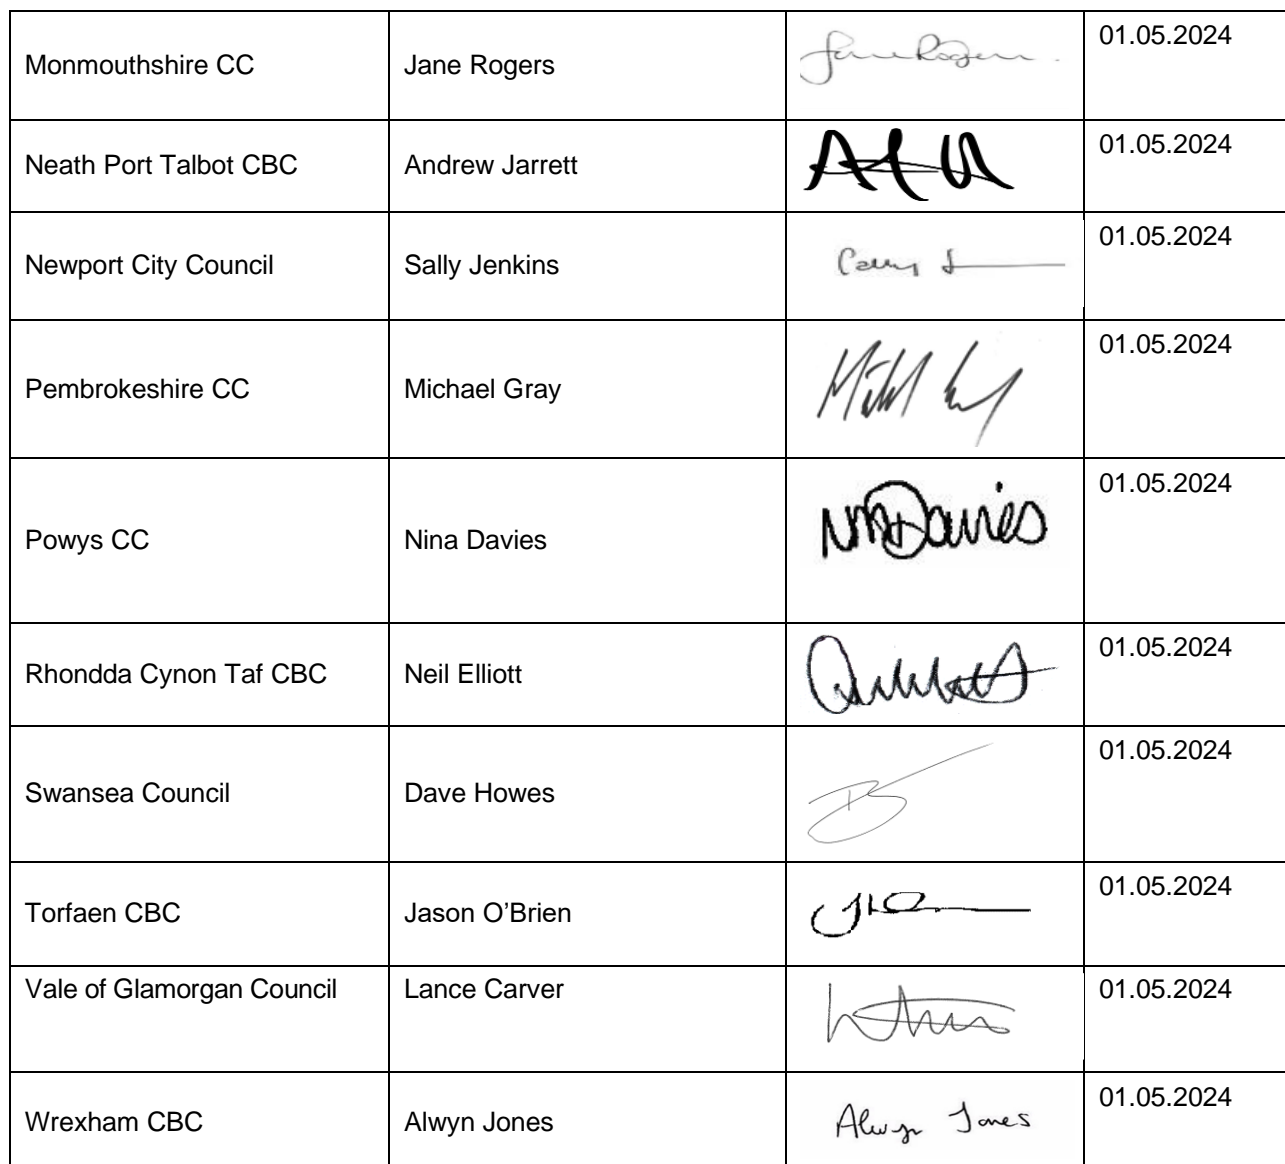 Monmouthshire CC Jane Rogers Jane Rogers. 01.05.2024
Neath Port Talbot CBC Andrew Jarrett 01.05.2024
Newport City Council Sally Jenkins 01.05.2024
Pembrokeshire CC Michael Gray 01.05.2024
Powys CC Nina Davies NMDavies 01.05.2024
Rhondda Cynon Taf CBC Neil Elliott 01.05.2024
Swansea Council Dave Howes 01.05.2024
Torfaen CBC Jason O’Brien 01.05.2024
Vale of Glamorgan Council Lance Carver 01.05.2024
Wrexham CBC Alwyn Jones Alwyn Jones 01.05.2024